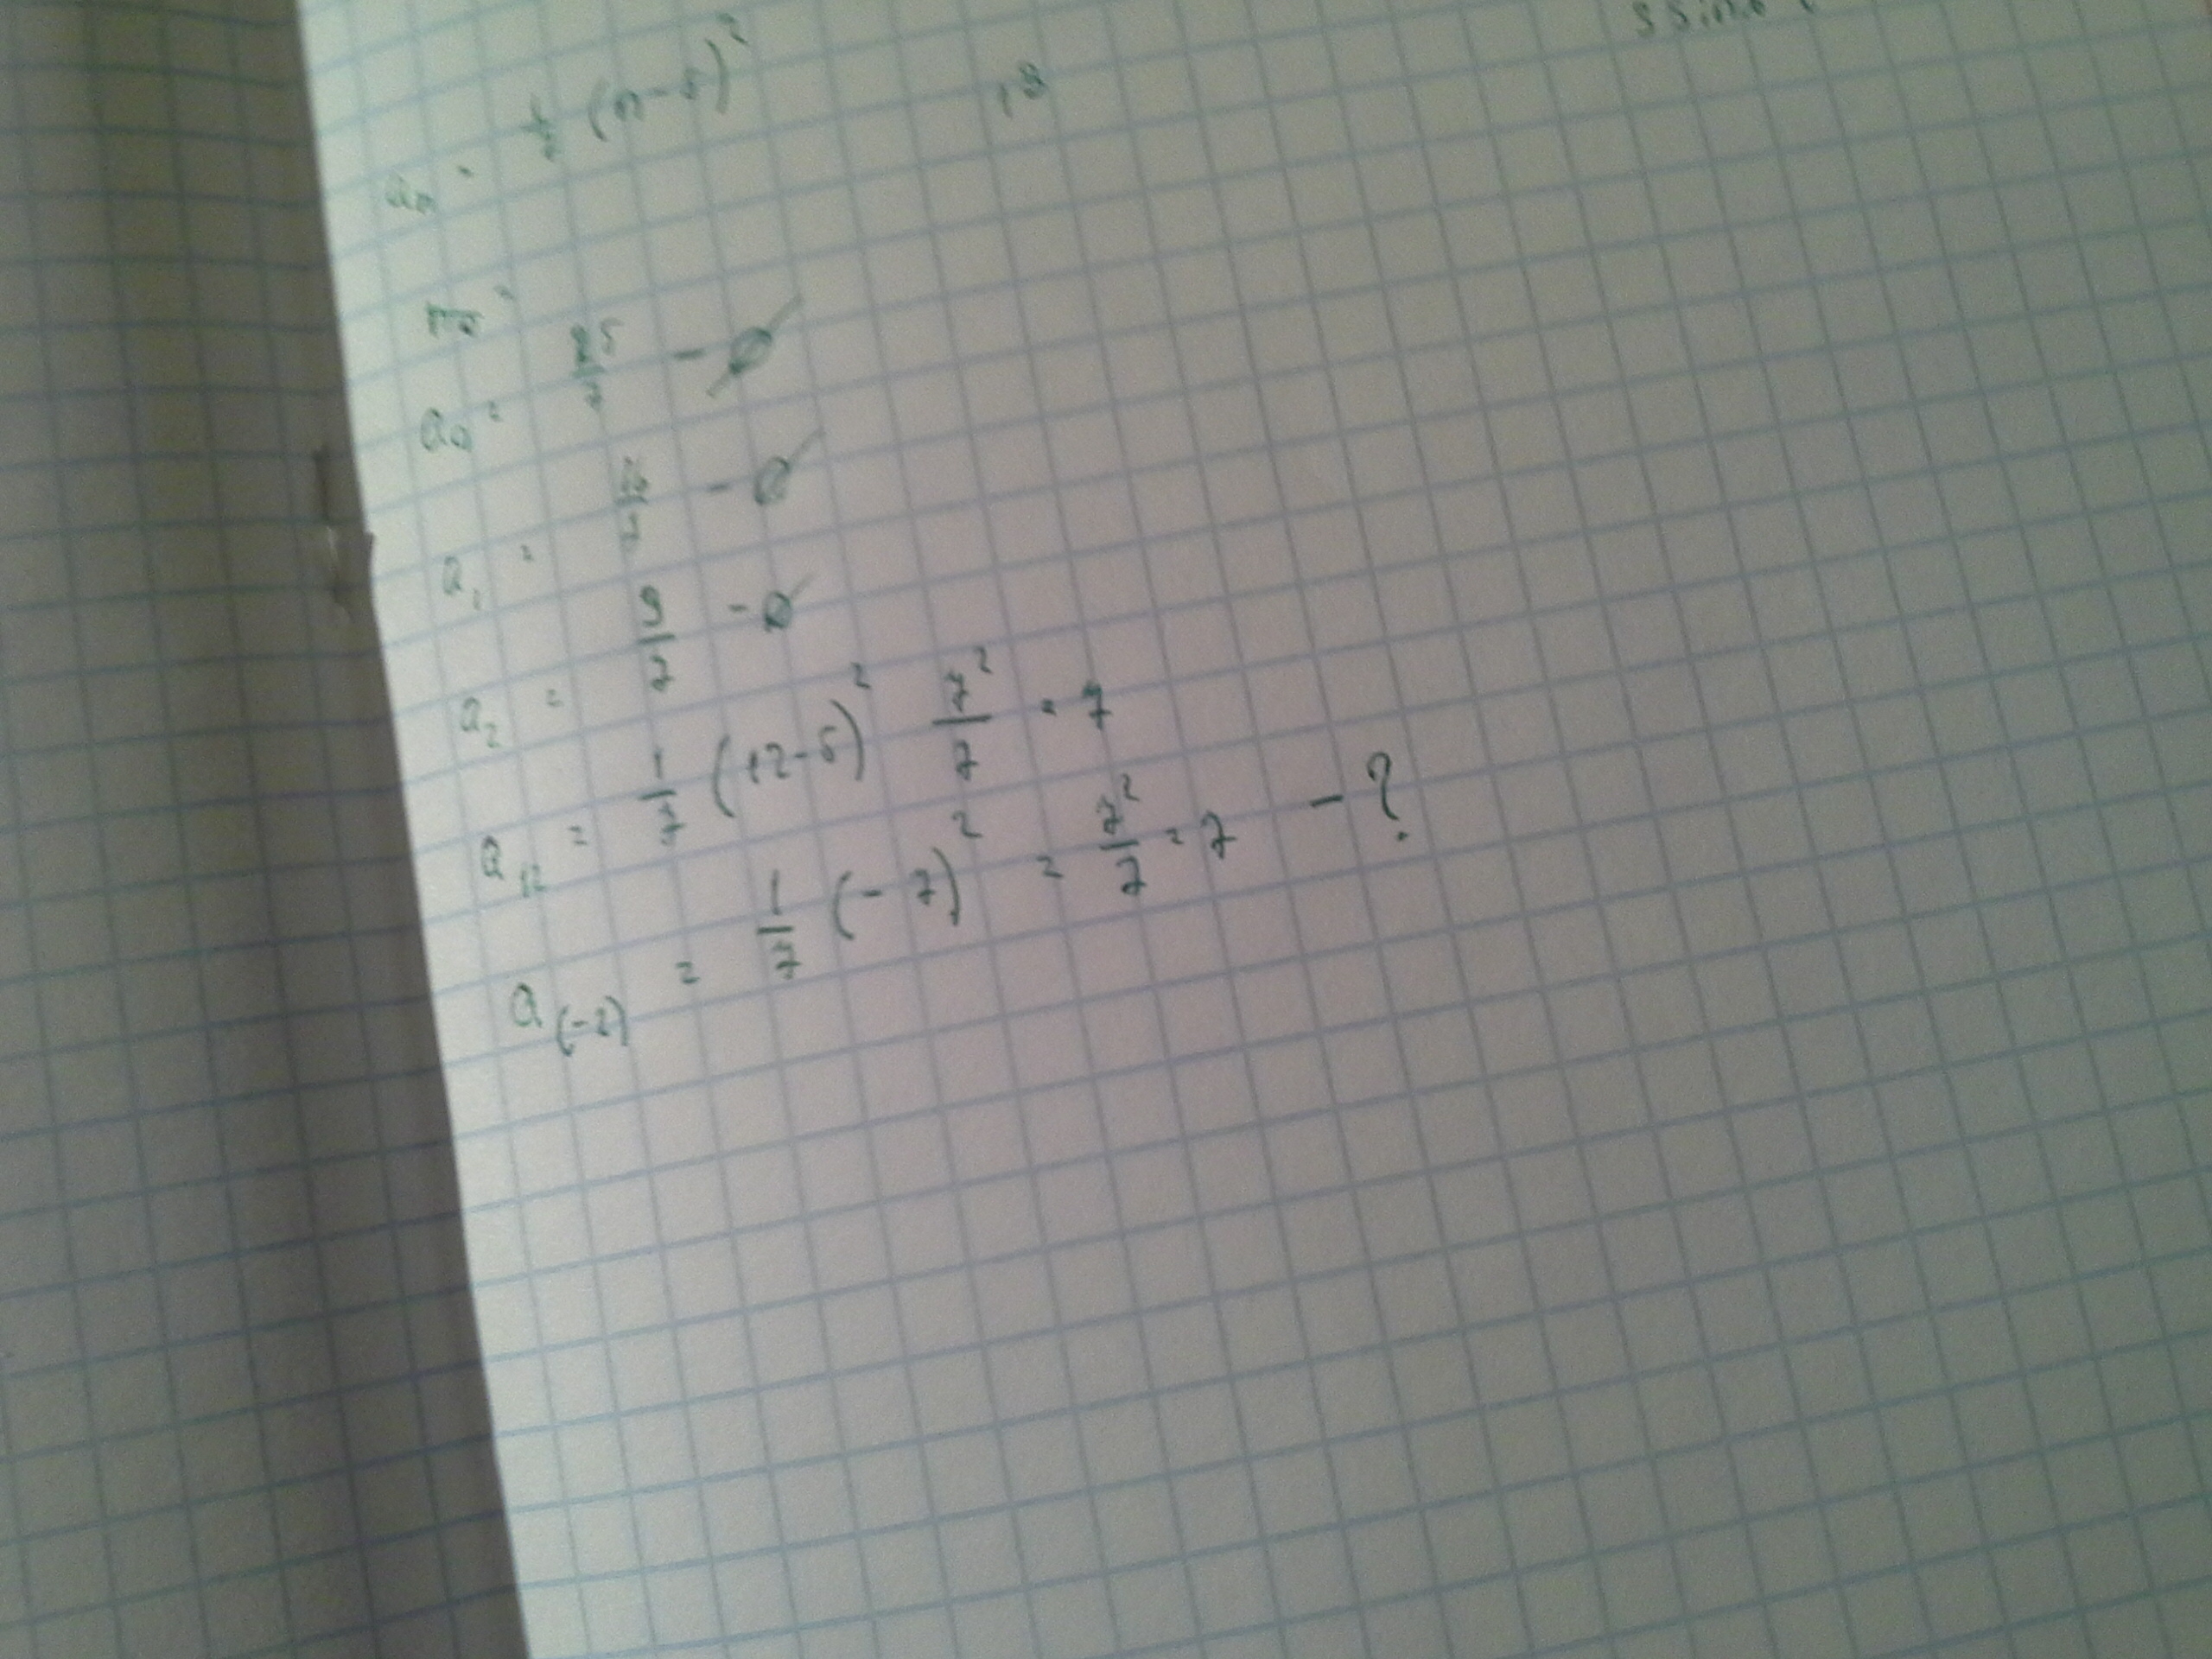 a_n = 1/7 (n-5)^2
a_0 = 25/7 - Ø
a_1 = 16/7 - Ø
a_2 = 9/7 - Ø
a_12 = 1/7 (12-5)^2 7^2/7 = 7
a_(-2) = 1/7 (-7)^2 = 7^2/7 = 7 - ?